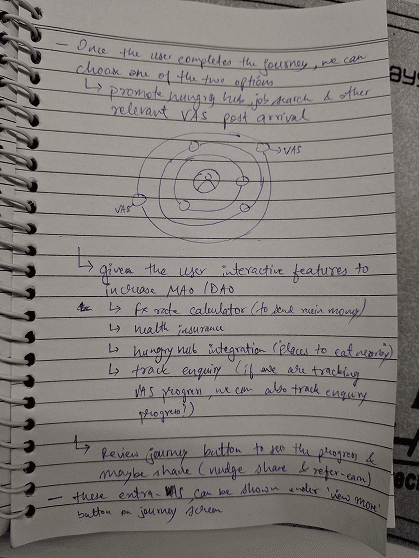 - Once the user completes the journey, we can
choose one of the two options
↳ promote hungry hub, job search & other
relevant VAS post arrival
→ VAS
VAS
↳ given the user interactive features to
increase MAO / DAO
↳ fx rate calculator (to send main money)
↳ health insurance
↳ hungry hub integration (places to eat nearby)
↳ track enquiry (if we are tracking
VAS progress we can also track enquiry
progress?)
↳ Review journey button to see the progress &
maybe share (nudge share & refer-earn)
- these extra VAS can be shown under 'view more'
button on journey screen